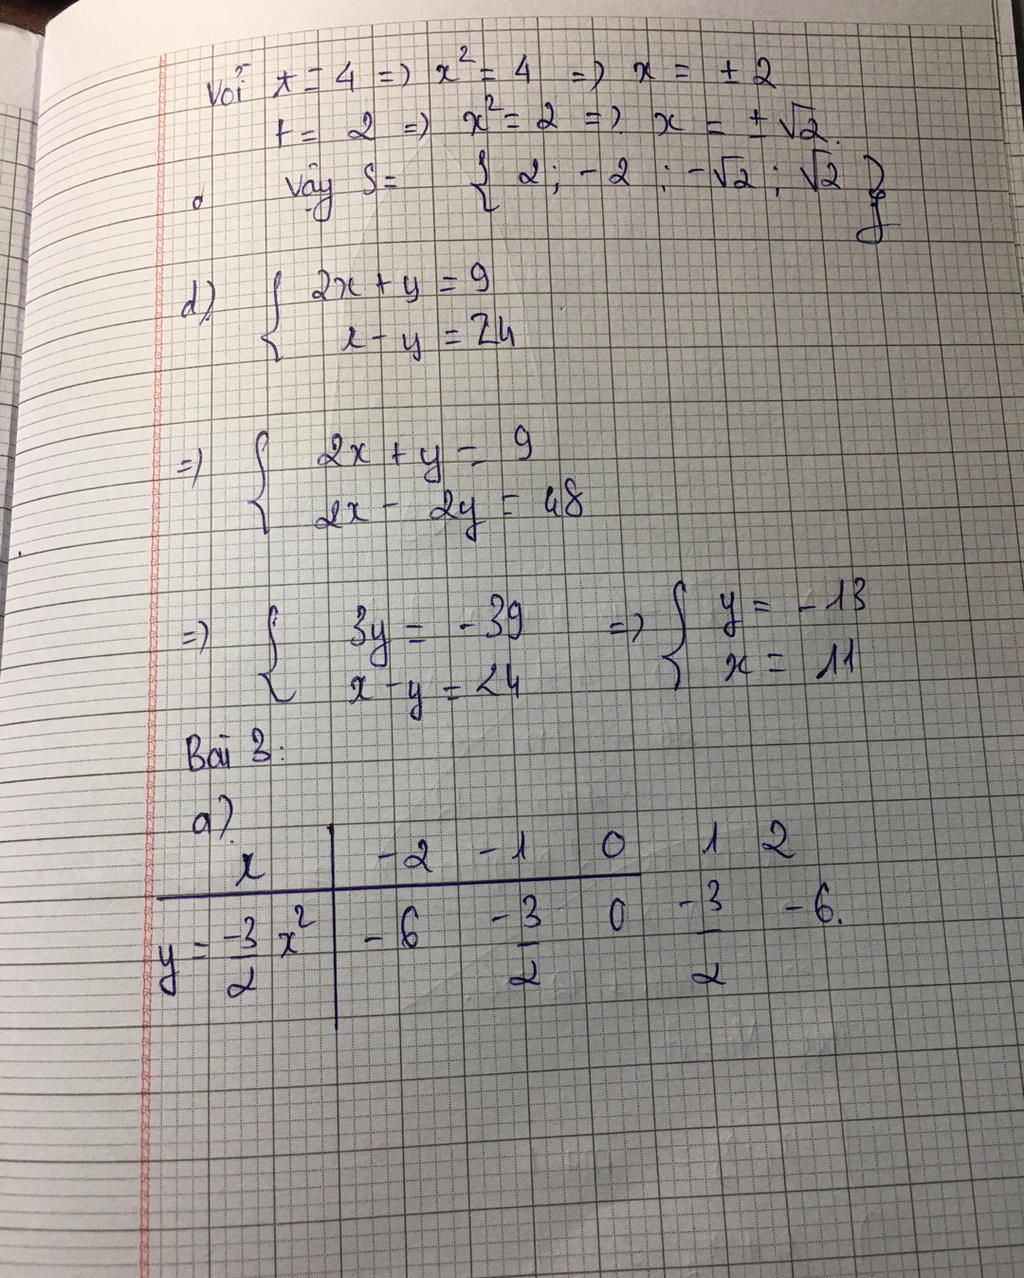 Với t = 4 => x² = 4 => x = ± 2
t = 2 => x² = 2 => x = ± √2.
Vậy S = { 2 ; - 2 ; - √2 ; √2 }
d) { 2x + y = 9
x - y = 24
=> { 2x + y = 9
2x - 2y = 48
=> { 3y = - 39 => { y = - 13
x - y = 24 x = 11
Bài 3:
a)
x -2 -1 0 1 2
y = -3/2 x² -6 -3/2 0 -3/2 -6.